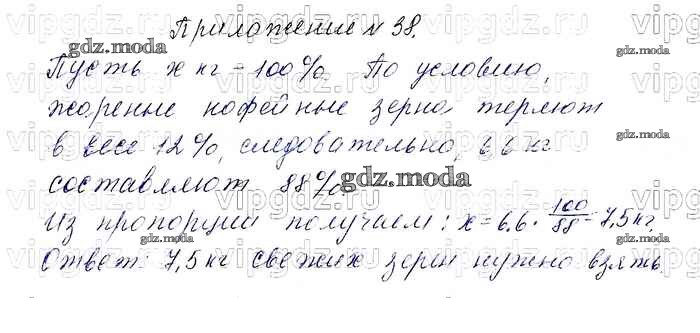 Приложение № 38.
Пусть x кг – 100%. По условию,
жареные кофейные зерна теряют
в весе 12%, следовательно, 6,6 кг
составляют 88%.
Из пропорции получаем: x = 6,6 · 100/88 = 7,5 кг.
Ответ: 7,5 кг свежих зерен нужно взять.
vipgdz.ru
gdz.moda